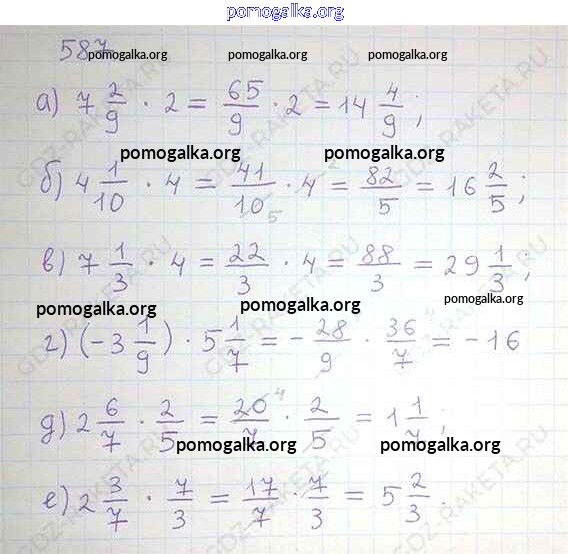 pomogalka.org
587 pomogalka.org pomogalka.org pomogalka.org
а) 7 2/9 · 2 = 65/9 · 2 = 14 4/9;
pomogalka.org pomogalka.org
б) 4 1/10 · 4 = 41/10 5 · 4 = 82/5 = 16 2/5;
pomogalka.org pomogalka.org
в) 7 1/3 · 4 = 22/3 · 4 = 88/3 = 29 1/3;
pomogalka.org pomogalka.org pomogalka.org
г) (-3 1/9) · 5 1/7 = - 28/9 · 36/7 = -16
pomogalka.org pomogalka.org
д) 2 6/7 · 2/5 = 20/7 4 · 2/5 = 1 1/7;
pomogalka.org pomogalka.org
е) 2 3/7 · 7/3 = 17/7 · 7/3 = 5 2/3.
GDZ-RAKETA.RU